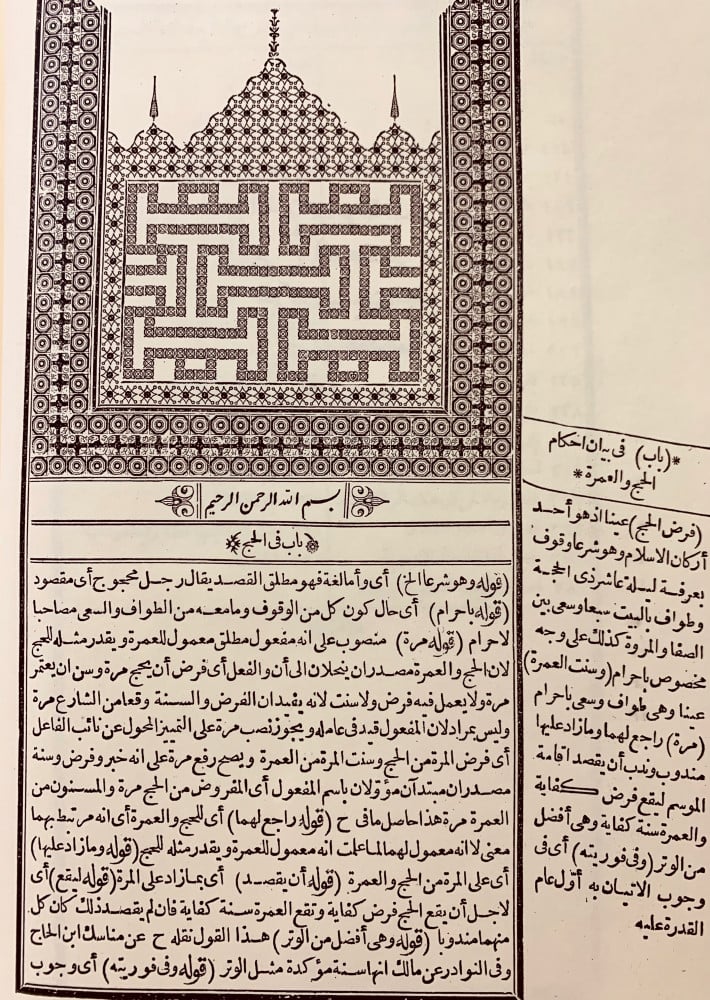 بسم الله الرحمن الرحيم
﴿باب فى الحج﴾
(قوله وهو شرعا الخ) أى وأما لغة فهو مطلق القصد يقال رجل محجوج أى مقصود
(قوله باحرام) أى حال كون كل من الوقوف وما معه من الطواف والسعى مصاحبا
لاحرام (قوله مرة) منصوب على انه مفعول مطلق معمول للعمرة ويقدر مثله للحج
لان الحج والعمرة مصدران ينحلان الى أن والفعل أى فرض أن يحج مرة وسن ان يعتمر
مرة ولا يعمل فيه فرض ولا سنت لانه يفيد ان الفرض والسنة وقعا من الشارع مرة
وليس بمراد لان المفعول قيد فى عامله ويجوز نصب مرة على التمييز المحول عن نائب الفاعل
أى فرض المرة من الحج وسنت المرة من العمرة ويصح رفع مرة على انه خبر وفرض وسنة
مصدران مبتدآن مؤولان باسم المفعول أى المفروض من الحج مرة والمسنون من
العمرة مرة هذا حاصل مافى ح (قوله راجع لهما) أى للحج والعمرة أى انه مرتبط بهما
معنى لا انه معمول لهما لما علمت انه معمول للعمرة ويقدر مثله للحج (قوله ومازاد عليها)
أى على المرة من الحج والعمرة (قوله أن يقصد) أى بمازاد على المرة (قوله ليقع) أى
لاجل أن يقع الحج فرض كفاية وتقع العمرة سنة كفاية فان لم يقصد ذلك كان كل
منهما مندوبا (قوله وهى أفضل من الوتر) هذا القول نقله ح عن مناسك ابن الحاج
وفى النوادر عن مالك انها سنة مؤكدة مثل الوتر (قوله وفى فوريته) أى وجوب
*(باب) فى بيان احكام
الحج والعمرة*
(فرض الحج) عينا اذ هو أحد
أركان الاسلام وهو شرعا وقوف
بعرفة ليلة عاشر ذى الحجة
وطواف بالبيت سبعا وسعى بين
الصفا والمروة كذلك على وجه
مخصوص باحرام (وسنت العمرة)
عينا وهى طواف وسعى باحرام
(مرة) راجع لهما ومازاد عليها
مندوب وندب أن يقصد اقامة
الموسم ليقع فرض كفاية
والعمرة سنة كفاية وهى أفضل
من الوتر (وفى فوريته) أى فى
وجوب الاتيان به أول عام
القدرة عليه